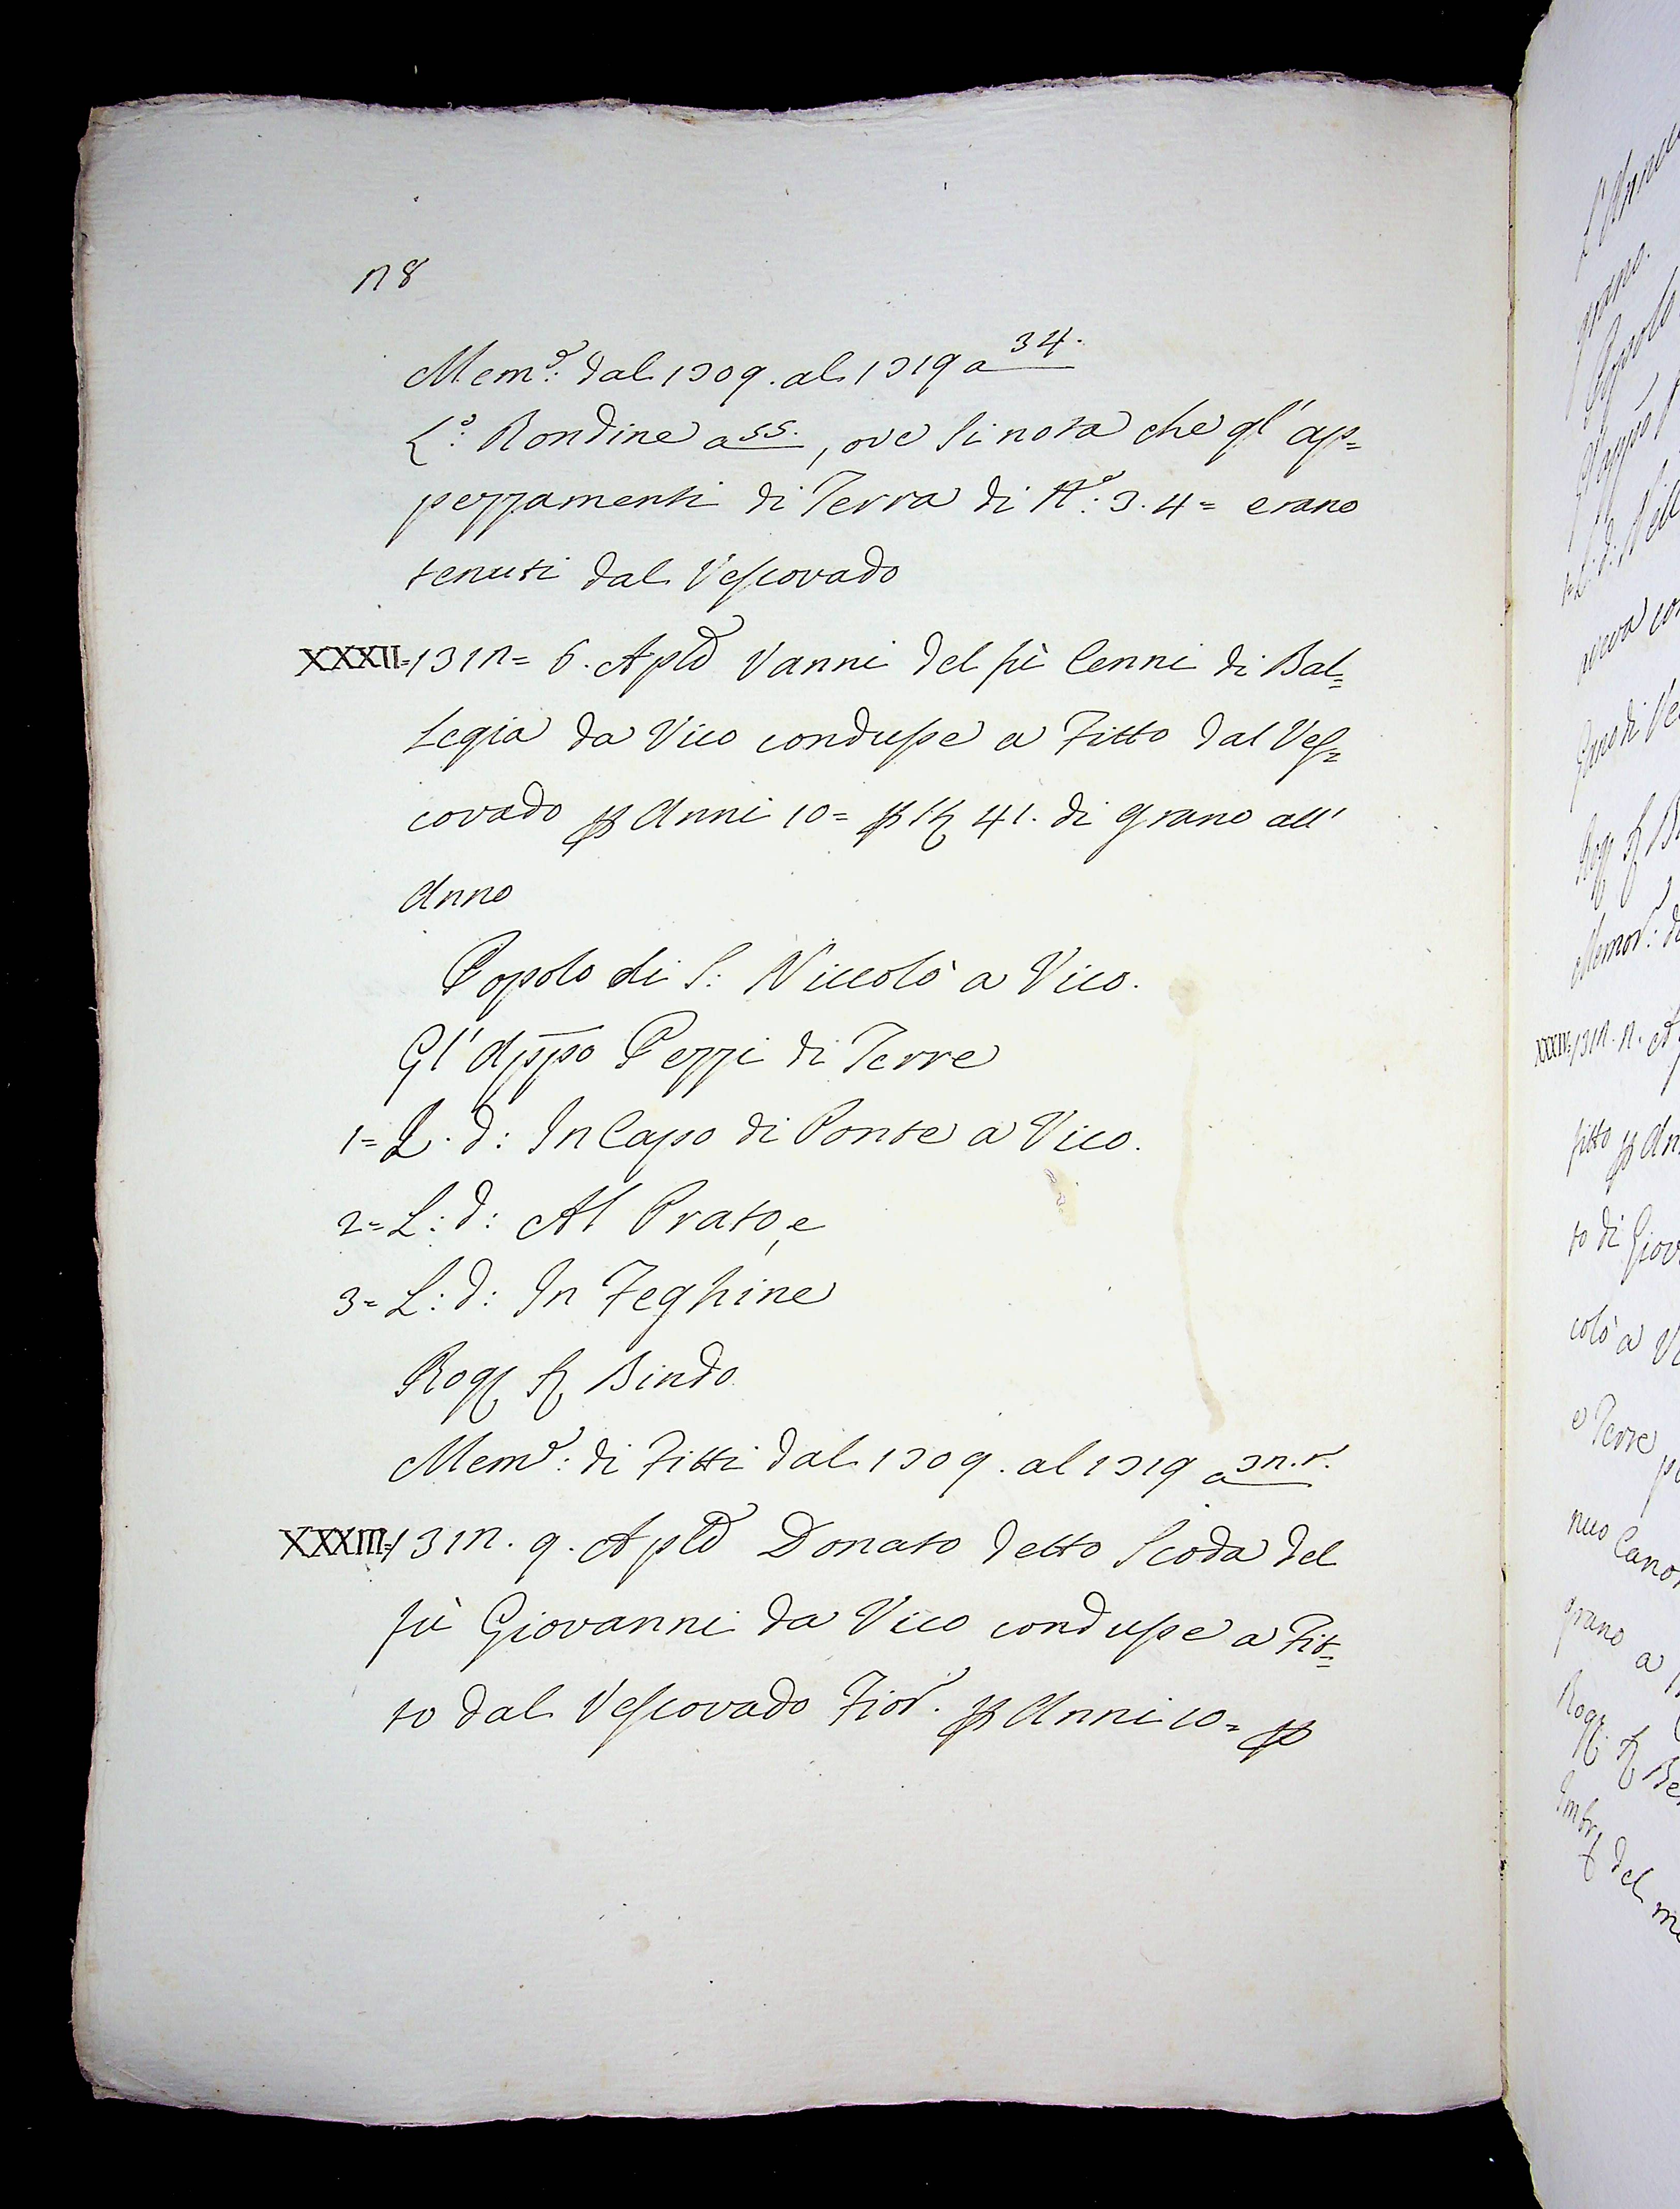 78
Mem:ᵉ dal 1309. al 1319 a 34.
L:º Rondine a 55., ove si nota che gl' ap=
pezzamenti di Terra di N:º 3. 4= erano
tenuti dal Vescovado
XXXII= 1317= 6. Aple Vanni del fù Cenni di Bal=
segia da Vico condusse a Fitto dal Ves=
covado p Anni 10= p st 41. di grano all'
Anno
Popolo di S: Niccolò a Vico.
Gl' Appso Pezzi di Terre
1= L. d: In Capo di Ponte a Vico.
2= L: d: Al Prato, e
3= L: d: In Feghine
Rog Sr Bindo
Meme: di Fitti dal 1309. al 1319 a 37. r.
XXXIII= 1317. 9. Aple Donato detto Scoda del
fù Giovanni da Vico condusse a Fit=
to dal Vescovado Fior. p Anni 10= p
grano.
XXXIV= 1317. 7.
fitto p An
to di Giov
colò a Vi
e Terre
nuo Cano
grano a
del